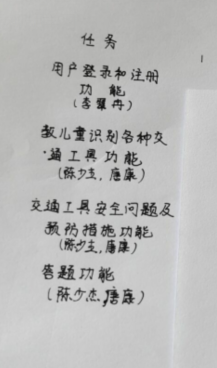 任务
用户登录和注册
功能
(李翼冉)
教儿童识别各种交
通工具功能
(陈少杰,唐康)
交通工具安全问题及
预防措施功能
(陈少杰,唐康)
答题功能
(陈少杰,唐康)